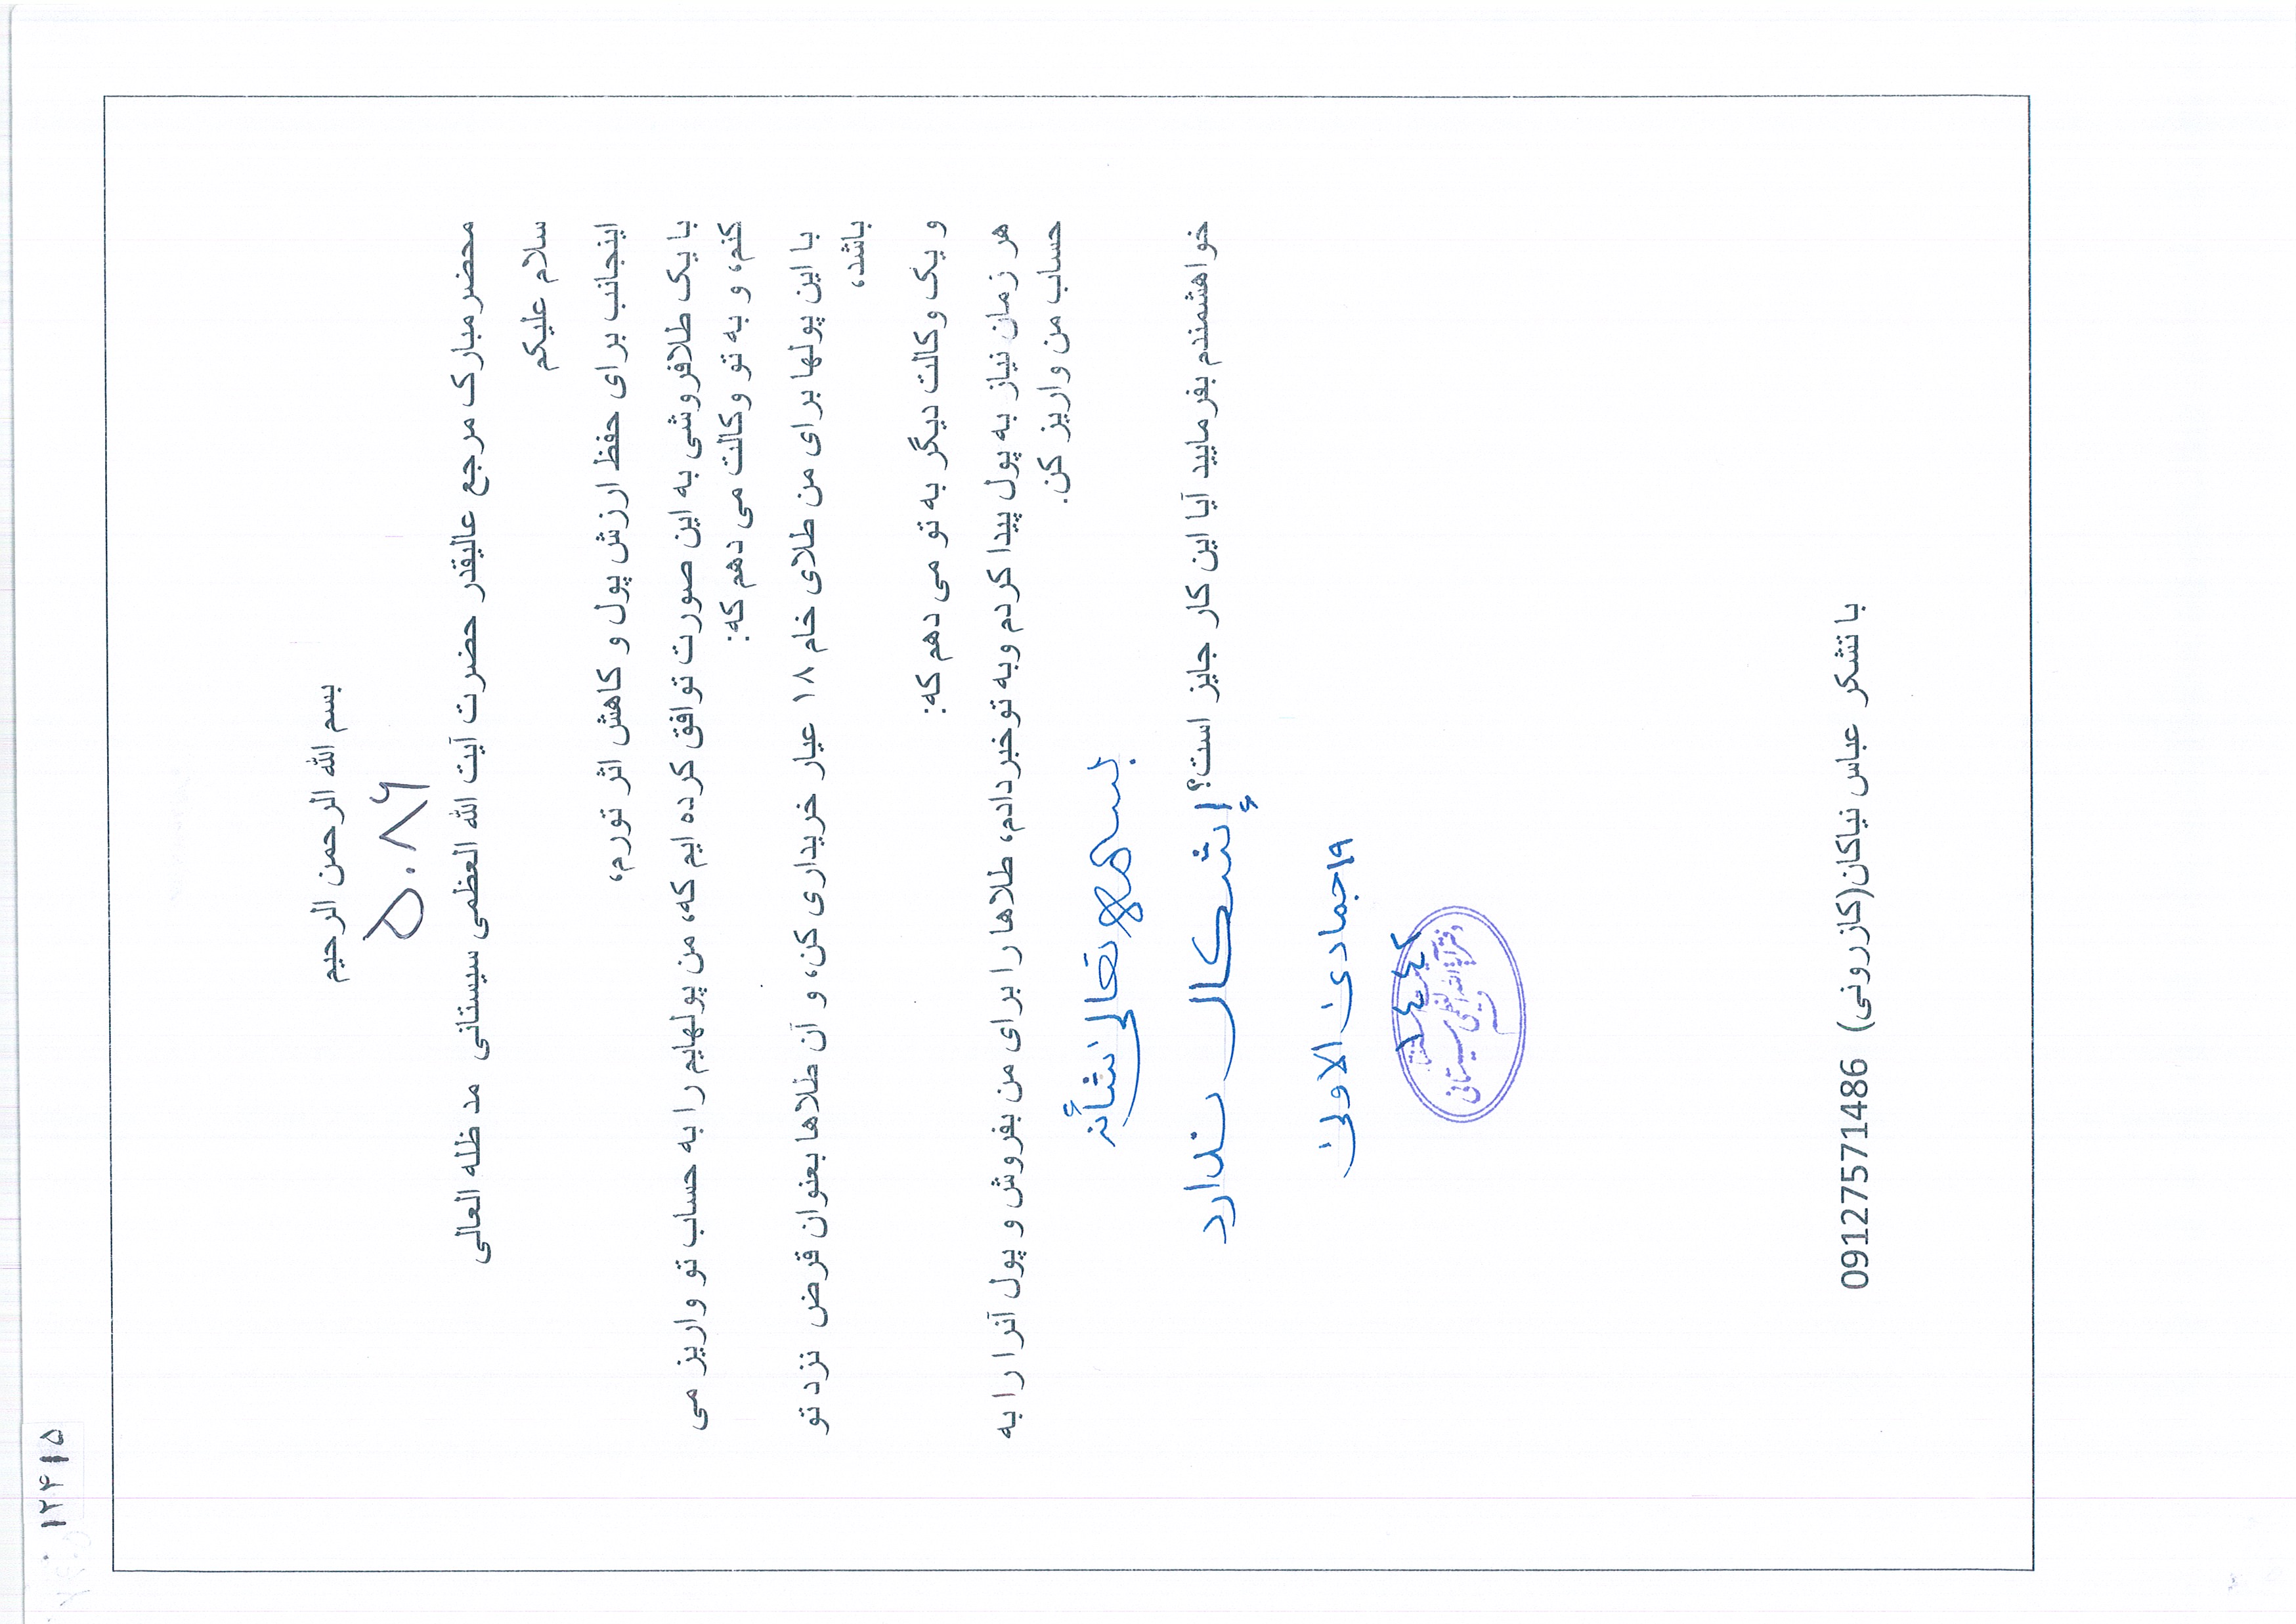 ۱۲۴۱۵
بسم الله الرحمن الرحیم
۵۰۸۶
محضر مبارک مرجع عالیقدر حضرت آیت الله العظمی سیستانی مد ظله العالی
سلام علیکم
اینجانب برای حفظ ارزش پول و کاهش اثر تورم،
با یک طلافروشی به این صورت توافق کرده ایم که، من پولهایم را به حساب تو واریز می
کنم، و به تو وکالت می دهم که:
با این پولها برای من طلای خام ۱۸ عیار خریداری کن، و آن طلاها بعنوان قرض نزد تو
باشد،
و یک وکالت دیگر به تو می دهم که:
هر زمان نیاز به پول پیدا کردم وبه تو خبر دادم، طلاها را برای من بفروش و پول آنرا را به
حساب من واریز کن.
بسمه تعالی شأنه
خواهشمندم بفرمایید آیا این کار جایز است؟
إشکال ندارد
۱۹جمادی الاولی
١٤٤٤
دفتر آیة الله العظمی سیستانی
با تشکر عباس نیاکان(کازرونی) 09127571486